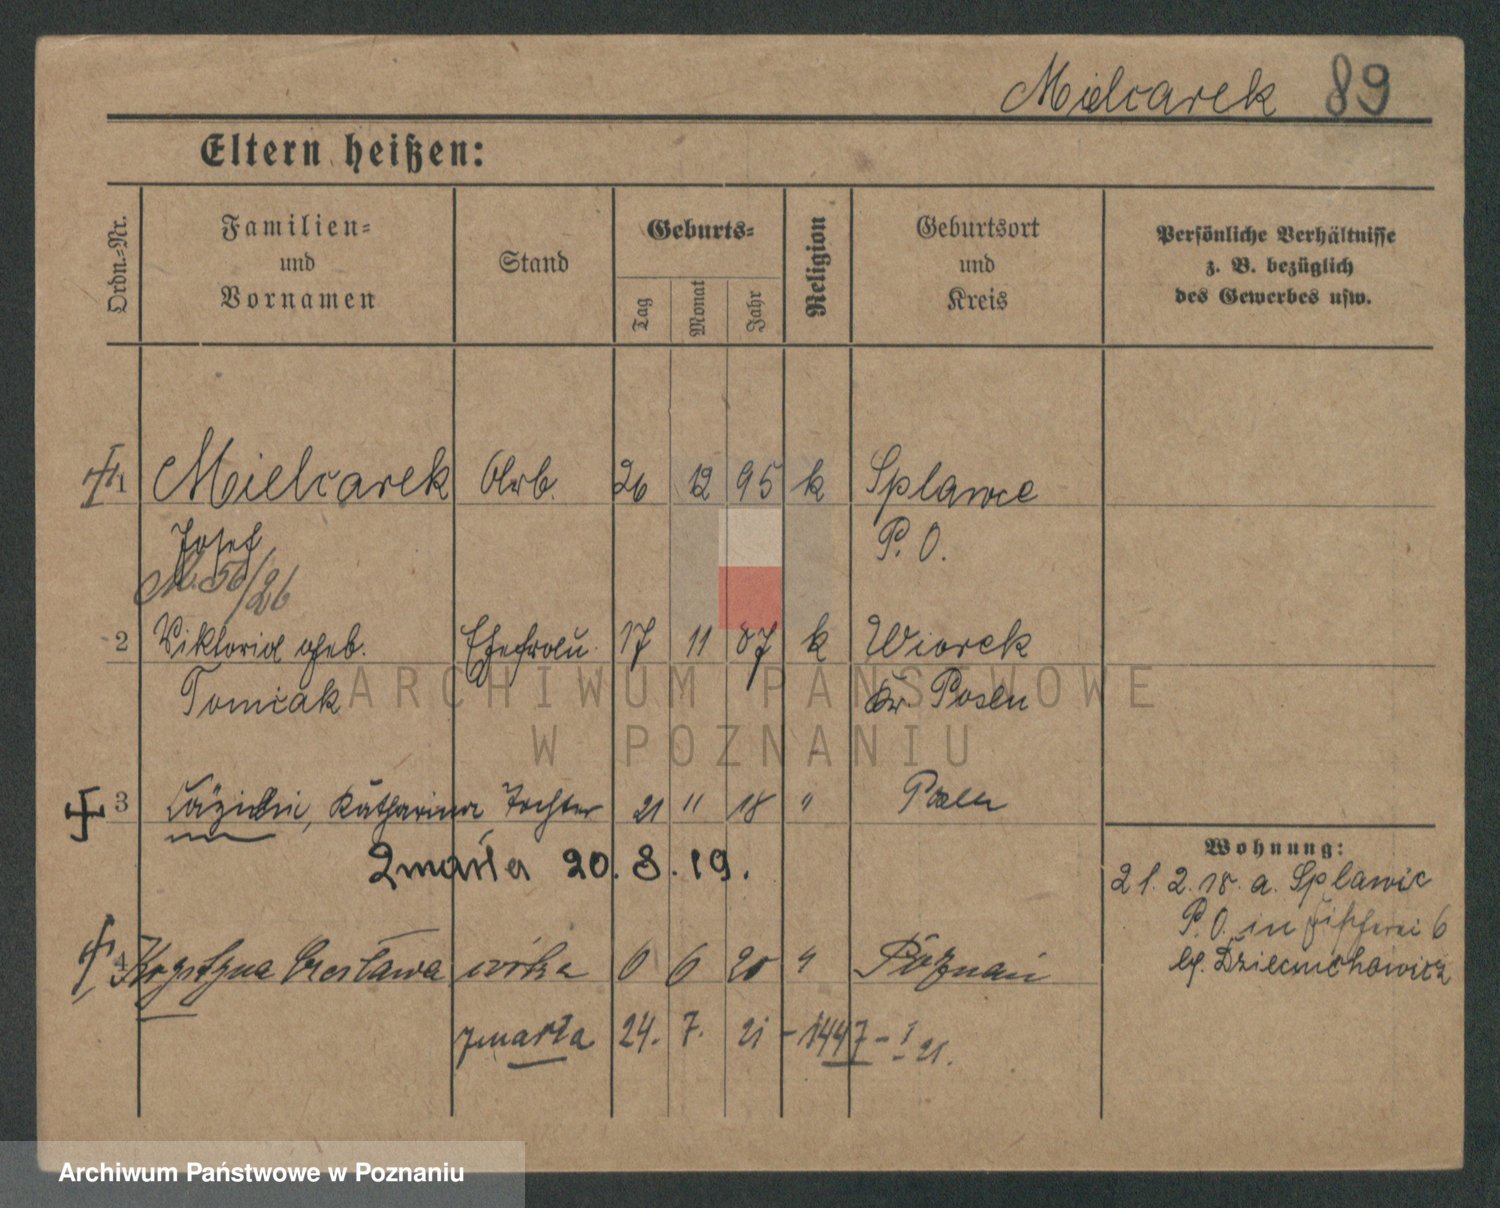 Mielcarek 89
Eltern heißen:
Ordn.-Nr.
Familien-
und
Vornamen
Stand
Geburts-
Tag
Monat
Jahr
Religion
Geburtsort
und
Kreis
Persönliche Verhältnisse
z. B. bezüglich
des Gewerbes usw.
1 Mielcarek Arb. 26 12 95 k Splawie
Josef P. O.
56/26
2 Viktoria geb. Ehefrau 17 11 87 k Wiorek
Tomcak Kr. Posen
ARCHIWUM PAŃSTWOWE
W POZNANIU
3 Cäzilie, Katharina Tochter 21 11 18 " Posen
Zmarła 20.8.19.
Wohnung:
21. 2. 18. a. Splawie
P. O. in Fischerei 6
4 Krystyna Czesława córka 6 6 20 " Poznań
zmarła 24. 7. 21 - 1447 - I 21.
Archiwum Państwowe w Poznaniu